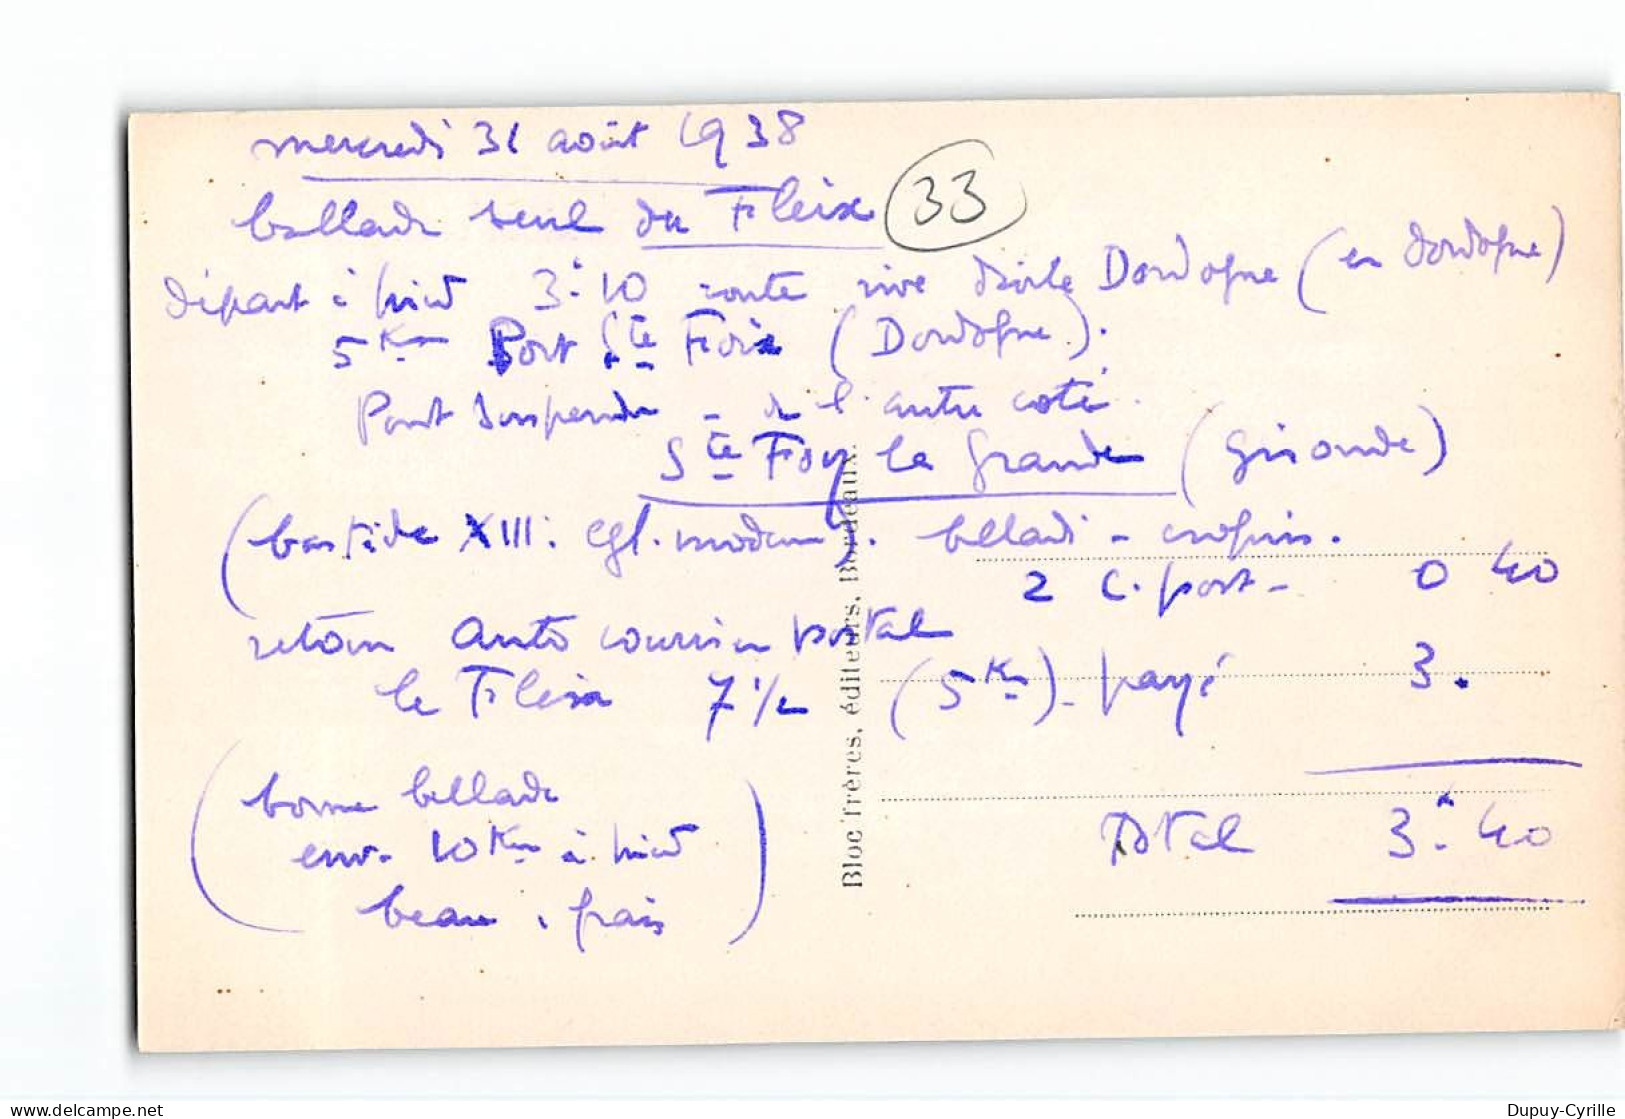 mercredi 31 août 1938
ballade seul du Fleix
33
départ à pied 3h10 route rive droite Dordogne (en Dordogne)
5 Km Port Ste Foix (Dordogne).
Pont suspendu - de l'autre coté.
Ste Foy la Grande (Gironde)
(bastide XIII. égl. moderne). ballade - croquis.
2 c. post - 0 40
retour auto courrier postal
le Fleix 7 1/2 (5 Km) - payé 3.
(bonne ballade
env. 10 Km à pied
beau, frais)
Total 3.40
Bloc frères, éditeurs, Bordeaux.
Dupuy-Cyrille